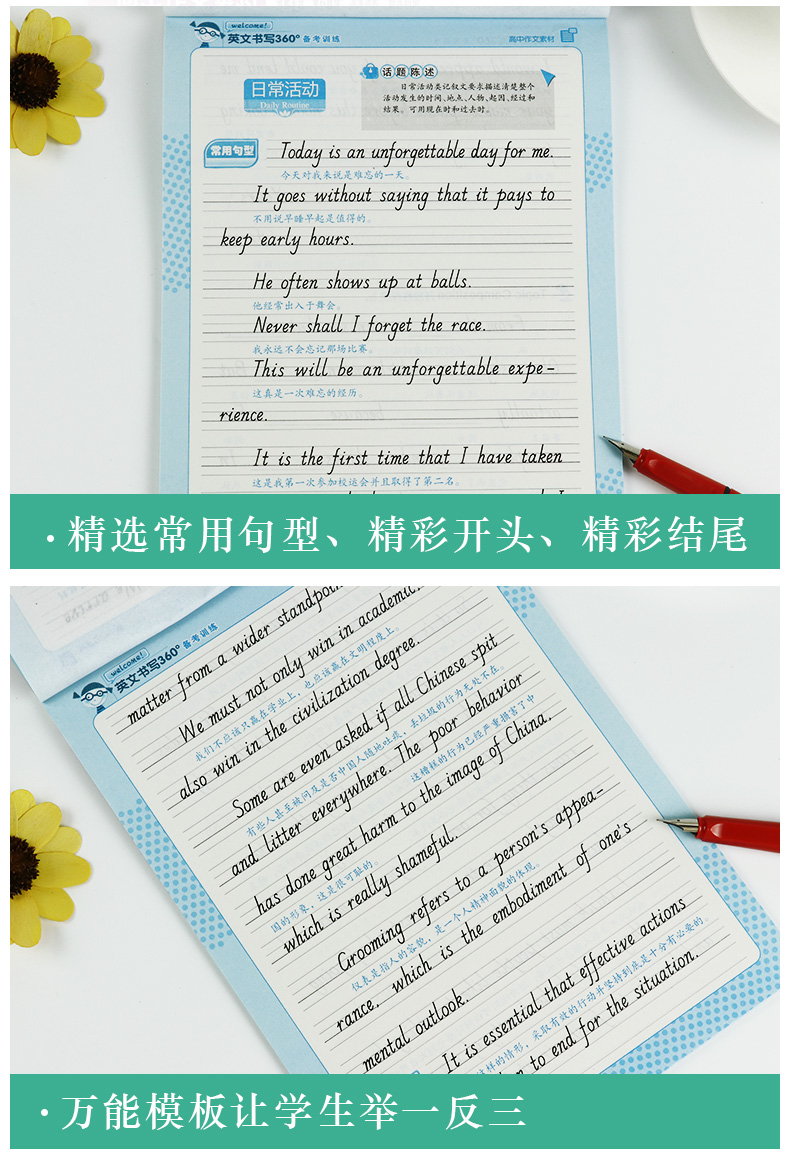 welcome!
英文书写360° 备考训练
高中作文素材
日常活动
Daily Routine
话题陈述
日常活动类记叙文要求描述清楚整个
活动发生的时间、地点、人物、起因、经过和
结果。可用现在时和过去时。
常用句型
Today is an unforgettable day for me.
今天对我来说是难忘的一天。
It goes without saying that it pays to
不用说早睡早起是值得的。
keep early hours.
He often shows up at balls.
他经常出入于舞会。
Never shall I forget the race.
我永远不会忘记那场比赛。
This will be an unforgettable expe-
这真是一次难忘的经历。
rience.
It is the first time that I have taken
这是我第一次参加校运会并且取得了第二名。
·精选常用句型、精彩开头、精彩结尾
welcome!
英文书写360° 备考训练
matter from a wider
We must not only win in academic
我们不应该只赢在学业上，也应该赢在文明程度上。
also win in the civilization degree.
Some are even asked if all Chinese spit
有些人甚至被问及是否中国人随地吐痰，丢垃圾的行为无处不在。
and litter everywhere. The poor behavior
这糟糕的行为已经严重损害了中
has done great harm to the image of China.
国的形象，这是很可耻的。
which is really shameful.
Grooming refers to a person's appea-
仪表是指人的容貌，是一个人精神面貌的体现。
rance. which is the embodiment of one's
mental outlook.
It is essential that effective actions
这样的情形，采取有效的行动并坚持到底是十分有必要的。
to end for the situation.
·万能模板让学生举一反三